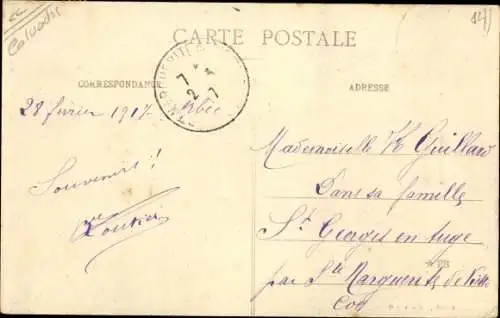 Calvados
14)
CARTE POSTALE
CORRESPONDANCE
ADRESSE
7
2
28 fevrier 1917
Souvenirs !
Mademoiselle Guillard
Dans sa famille
St Georges en Auge
par Ste Marguerite de Viette